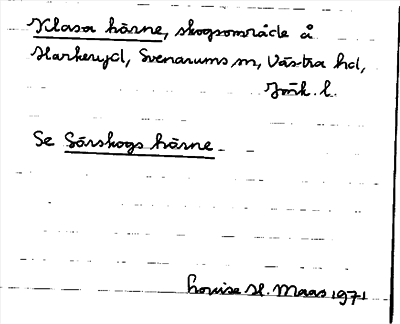 Klasa härne, skogsområde å
Harkeryd, Svenarums sn, Västra hd,
Jönk. l.
Se Särskogs härne
Louise H. Maas 1971